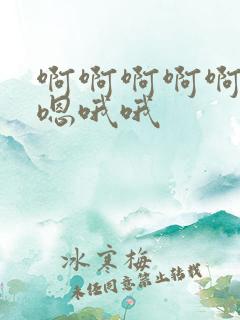 啊啊啊啊啊
嗯哦哦
冰寒梅
未经同意禁止转载